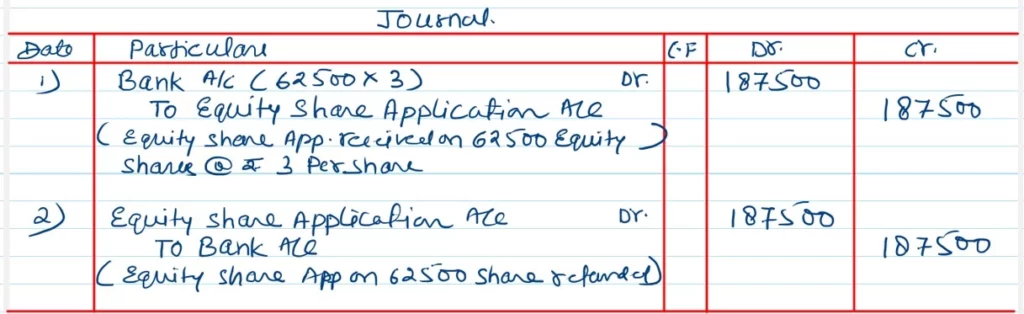 Journal.
Date Particulars L.F Dr. Cr.
1) Bank A/c (62500 × 3) Dr. 187500
To Equity Share Application A/c 187500
(Equity share App. received on 62500 Equity)
Shares @ ₹ 3 Per share
2) Equity share Application A/c Dr. 187500
To Bank A/c 187500
(Equity share App on 62500 Share refunded)